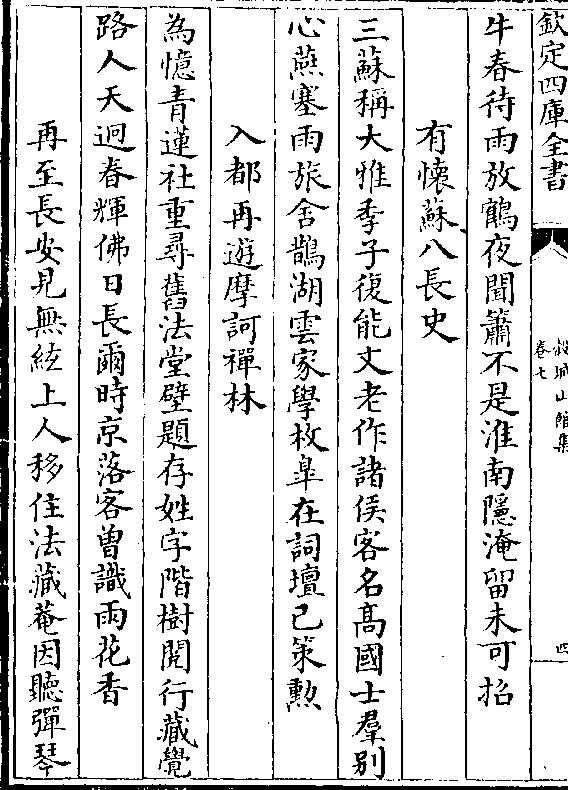 欽定四庫全書
穀城山館集
卷七
四
牛春待雨放鶴夜聞簫不是淮南隱淹留未可招
有懷蘇八長史
三蘇稱大雅季子復能文老作諸侯客名高國士羣别
心燕塞雨旅舍鵲湖雲家學枚臯在詞壇已策勲
入都再遊摩訶禪林
為憶青蓮社重尋舊法堂壁題存姓字階樹閱行藏覺
路人天迥春輝佛日長爾時京落客曾識雨花香
再至長安見無絃上人移住法藏菴因聽彈琴